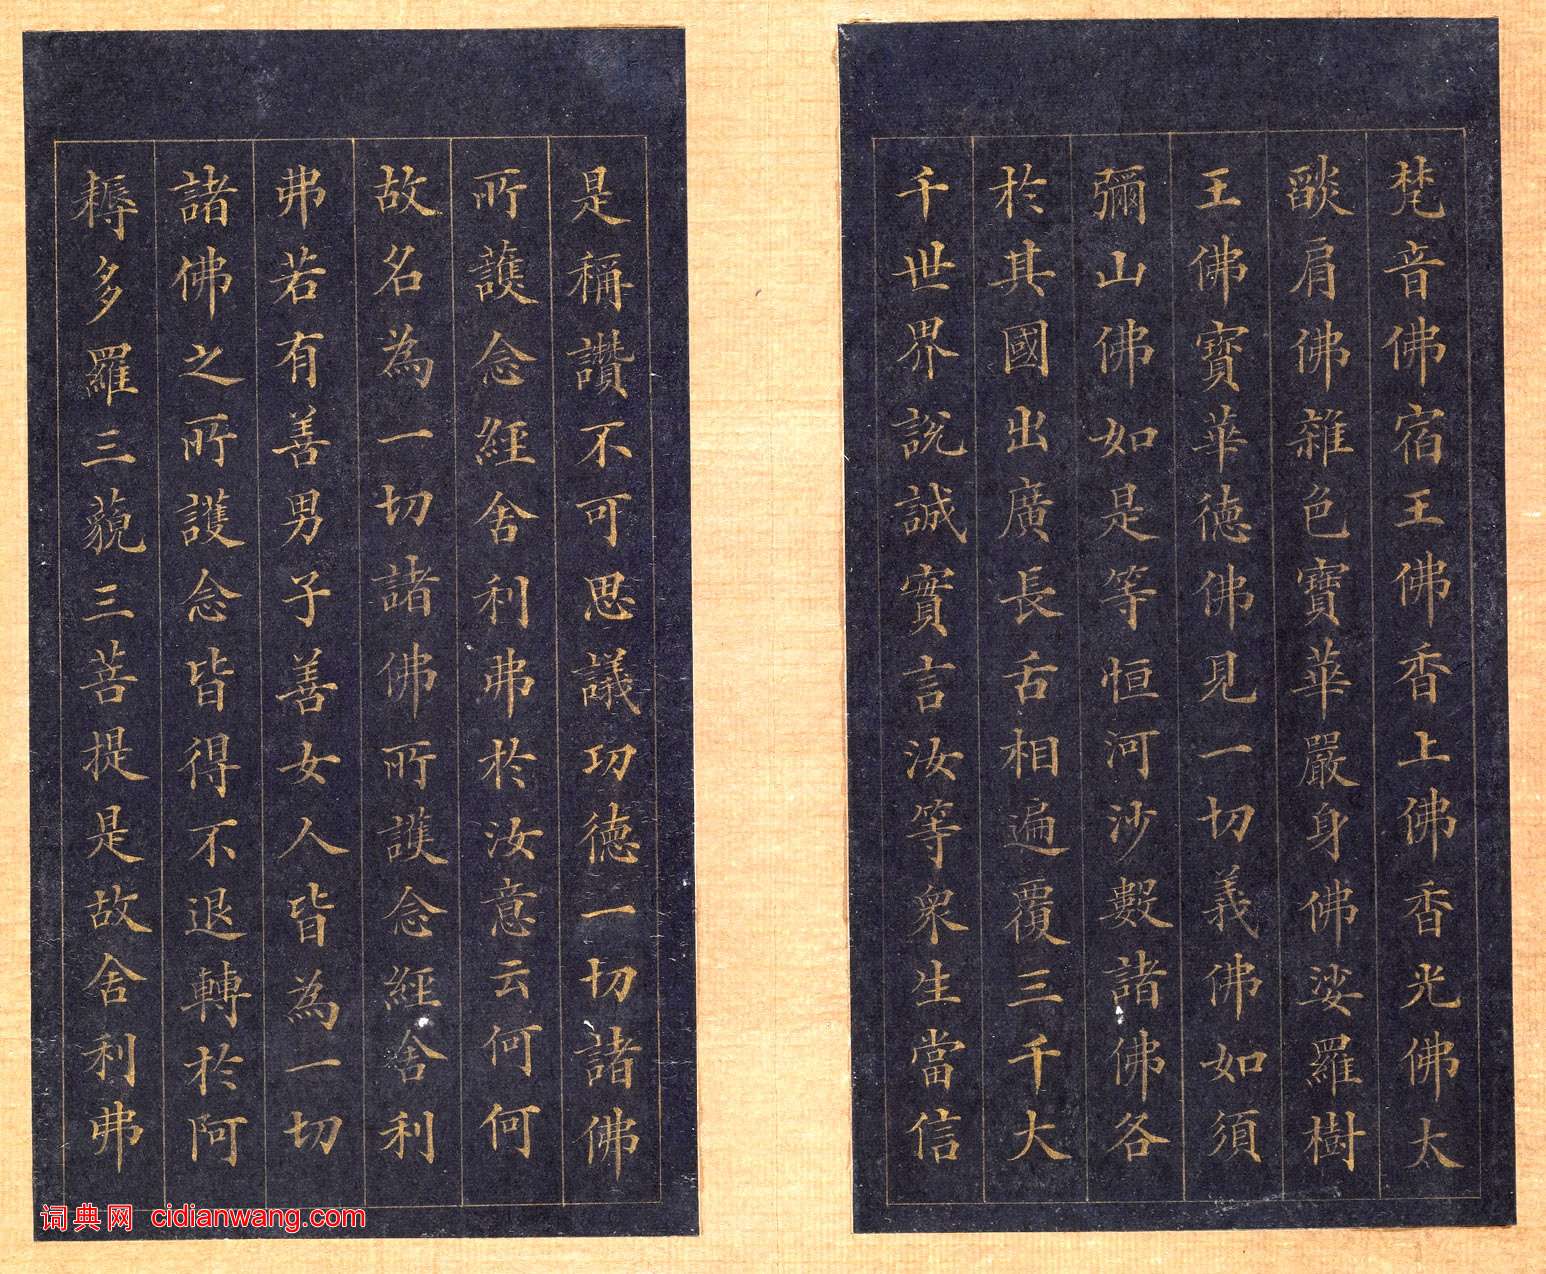 梵音佛宿王佛香上佛香光佛大
燄肩佛雜色寶華嚴身佛娑羅樹
王佛寶華德佛見一切義佛如須
彌山佛如是等恒河沙數諸佛各
於其國出廣長舌相遍覆三千大
千世界說誠實言汝等眾生當信
是稱讚不可思議功德一切諸佛
所護念經舍利弗於汝意云何何
故名為一切諸佛所護念經舍利
弗若有善男子善女人皆為一切
諸佛之所護念皆得不退轉於阿
耨多羅三藐三菩提是故舍利弗
词典网 cidianwang.com